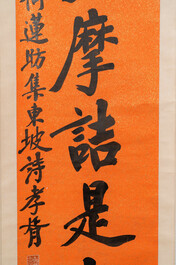 摩詰是
蓮舫集東坡詩孝胥